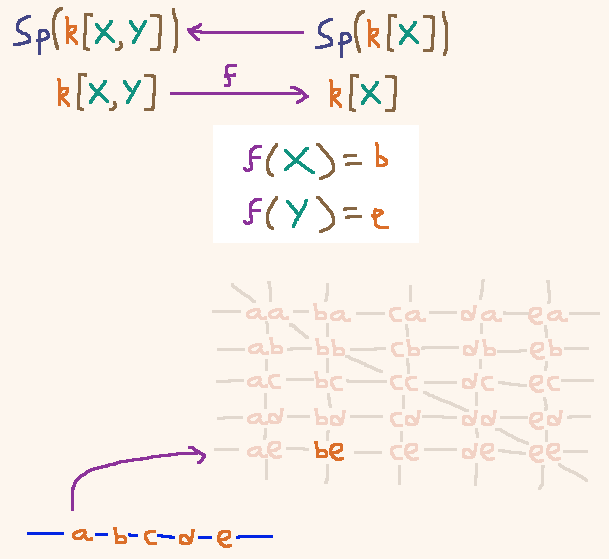 Sp(k[X,Y]) ← Sp(k[X])
k[X,Y] → k[X]
f
f(X)=b
f(Y)=e
aa ba ca da ea
ab bb cb db eb
ac bc cc dc ec
ad bd cd dd ed
ae be ce de ee
a b c d e